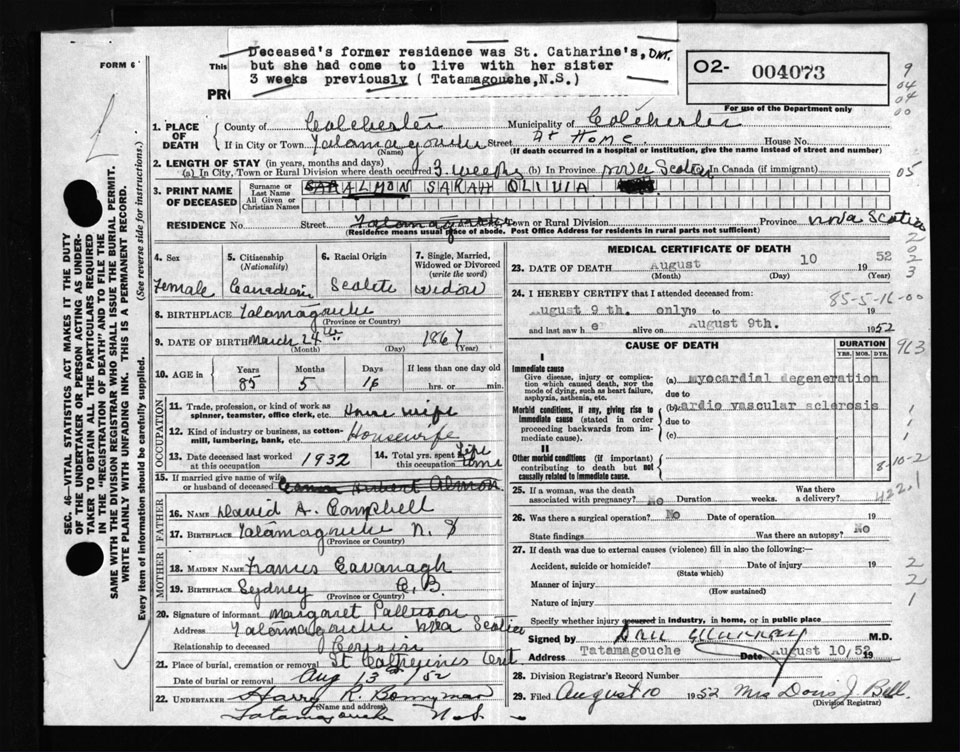 Deceased's former residence was St. Catharine's, ONT.
but she had come to live with her sister
3 weeks previously ( Tatamagouche, N.S.)
FORM 6
This
PRO
02- 004073
For use of the Department only
9
04
04
00
1. PLACE OF DEATH
County of Colchester Municipality of Colchester
If in City or Town Tatamagouche Street At Home House No.
(Name) (If death occurred in a hospital or institution, give the name instead of street and number)
2. LENGTH OF STAY (in years, months and days)
(a) In City, Town or Rural Division where death occurred 3 weeks (b) In Province Nova Scotia In Canada (if immigrant)
05
3. PRINT NAME OF DECEASED
Surname or Last Name
All Given or Christian Names
ALMON SARAH OLIVIA
RESIDENCE No. Street Tatamagouche Town or Rural Division Province Nova Scotia
(Residence means usual place of abode. Post Office Address for residents in rural parts not sufficient)
2
0
2
3
4. Sex
Female
5. Citizenship (Nationality)
Canadian
6. Racial Origin
7. Single, Married, Widowed or Divorced (write the word)
widow
8. BIRTHPLACE Tatamagouche
(Province or Country)
9. DATE OF BIRTH March 24th 1867
(Month) (Day) (Year)
10. AGE in
Years Months Days If less than one day old
85 5 16 hrs. or min.
OCCUPATION
11. Trade, profession, or kind of work as spinner, teamster, office clerk, etc. House wife
12. Kind of industry or business, as cotton-mill, lumbering, bank, etc. Housewife
13. Date deceased last worked at this occupation 1932
14. Total yrs. spent in this occupation Life time
15. If married give name of wife or husband of deceased Hubert Almon
FATHER
16. NAME David A. Campbell
17. BIRTHPLACE Tatamagouche N. S
(Province or Country)
MOTHER
18. MAIDEN NAME Frances Cavanagh
19. BIRTHPLACE Sydney C. B.
(Province or Country)
20. Signature of informant Margaret Patterson
Address Tatamagouche Nova Scotia
Relationship to deceased
21. Place of burial, cremation or removal St Catherines Ont
Date of burial or removal Aug 13th/52
22. UNDERTAKER Harry R. Bonnyman
(Name and address)
Tatamagouche N.S.
MEDICAL CERTIFICATE OF DEATH
23. DATE OF DEATH August 10 1952
(Month) (Day) (Year)
24. I HEREBY CERTIFY that I attended deceased from:
85-5-16-00
August 9 th. only 19 to 19
and last saw her alive on August 9th. 1952
CAUSE OF DEATH
DURATION
YRS. MOS. DYS.
963
I
Immediate cause
Give disease, injury or complication which caused death, not the mode of dying, such as heart failure, asphyxia, asthenia, etc.
(a) myocardial degeneration
due to
Morbid conditions, if any, giving rise to immediate cause (stated in order proceeding backwards from immediate cause).
(b) cardio vascular sclerosis
due to
(c)
1
1
II
Other morbid conditions (if important) contributing to death but not causally related to immediate cause.
8-10-2
422.1
25. If a woman, was the death associated with pregnancy? No Duration weeks. Was there a delivery?
26. Was there a surgical operation? No Date of operation 19
State findings Was there an autopsy? No
27. If death was due to external causes (violence) fill in also the following:—
Accident, suicide or homicide? Date of injury 19
(State which)
Manner of injury
(How sustained)
Nature of injury
Specify whether injury occured in industry, in home, or in public place
2
2
1
Signed by Dan Murray M.D.
Address Tatamagouche Date August 10/52 19
28. Division Registrar's Record Number
29. Filed August 10 1952 Mrs Doris J. Bell.
(Division Registrar)
SEC. 46—VITAL STATISTICS ACT MAKES IT THE DUTY
OF THE UNDERTAKER OR PERSON ACTING AS UNDER-
TAKER TO OBTAIN ALL THE PARTICULARS REQUIRED
IN THE "REGISTRATION OF DEATH" AND TO FILE THE
SAME WITH THE DIVISION REGISTRAR WHO SHALL ISSUE THE BURIAL PERMIT.
WRITE PLAINLY WITH UNFADING INK. THIS IS A PERMANENT RECORD.
Every item of information should be carefully supplied. (See reverse side for instructions.)